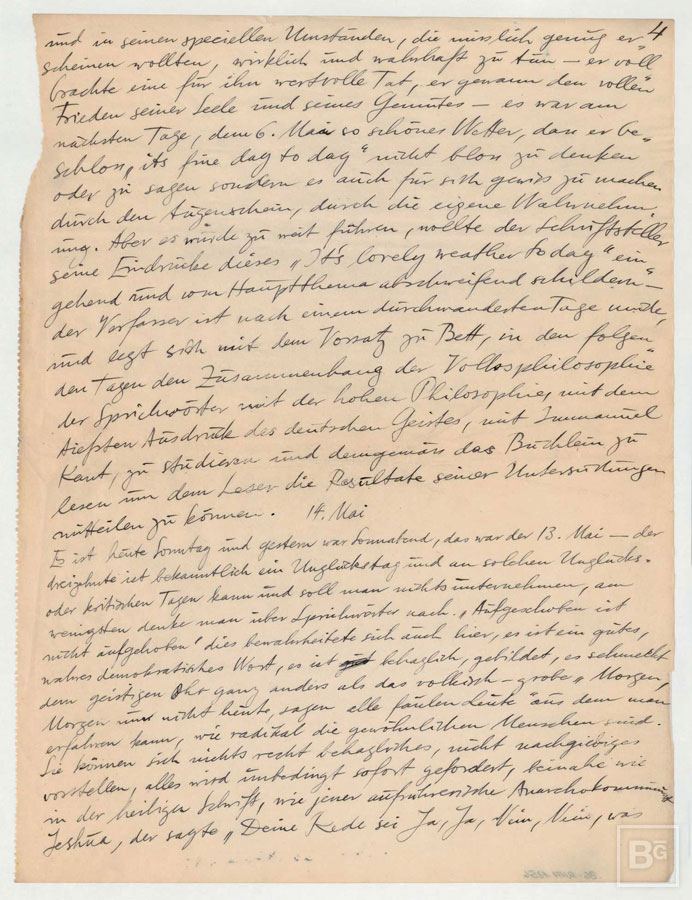 4
und in seinen speciellen Umständen, die misslich genug er„
scheinen wollten, wirklich und wahrhaft zu tun — er voll„
brachte eine für ihn wertvolle Tat, er gewann den vollen
Frieden seiner Seele und seines Gemütes — es war am
nächsten Tage, dem 6. Mai so schönes Wetter, dass er be„
schloss „its fine day to day“ nicht bloss zu denken
oder zu sagen sondern es auch für sich gewiss zu machen
durch den Augenschein, durch die eigene Wahrnehm„
ung. Aber es würde zu weit führen, wollte der Schriftsteller
seine Eindrücke dieses „It's lovely weather to day“ ein„
gehend und vom Hauptthema abschweifend schildern —
der Verfasser ist nach einem durchwanderten Tage müde,
und legt sich mit dem Vorsatz zu Bett, in den folgen„
den Tagen den Zusammenhang der Volksphilosophie
der Sprichwörter mit der hohen Philosophie, mit dem
tiefsten Ausdruck des deutschen Geistes, mit Immanuel
Kant, zu studieren und demgemäss das Büchlein zu
lesen um dem Leser die Resultate seiner Untersuchungen
mitteilen zu können. 14. Mai
Es ist heute Sonntag und gestern war Sonnabend, das war der 13. Mai — der
dreizehnte ist bekanntlich ein Unglückstag und an solchen Unglücks-
oder kritischen Tagen kann und soll man nichts unternehmen, am
wenigsten denke man über Sprichwörter nach. „Aufgeschoben ist
nicht aufgehoben“ dies bewahrheitete sich auch hier, es ist ein gutes,
wahres demokratisches Wort, es ist behaglich, gebildet, es schmeckt
dem geistigen Ohr ganz anders als das völkisch-grobe „Morgen,
Morgen nur nicht heute, sagen alle faulen Leute“ aus dem man
erfahren kann, wie radikal die gewöhnlichen Menschen sind.
Sie können sich nichts recht behagliches, nicht nachgiebiges
vorstellen, alles wird unbedingt sofort gefordert, beinahe wie
in der heiligen Schrift, wie jener aufrührerische Anarchokommunist
Jeshua, der sagte „Deine Rede sei Ja, Ja, Nein, Nein, was
BG